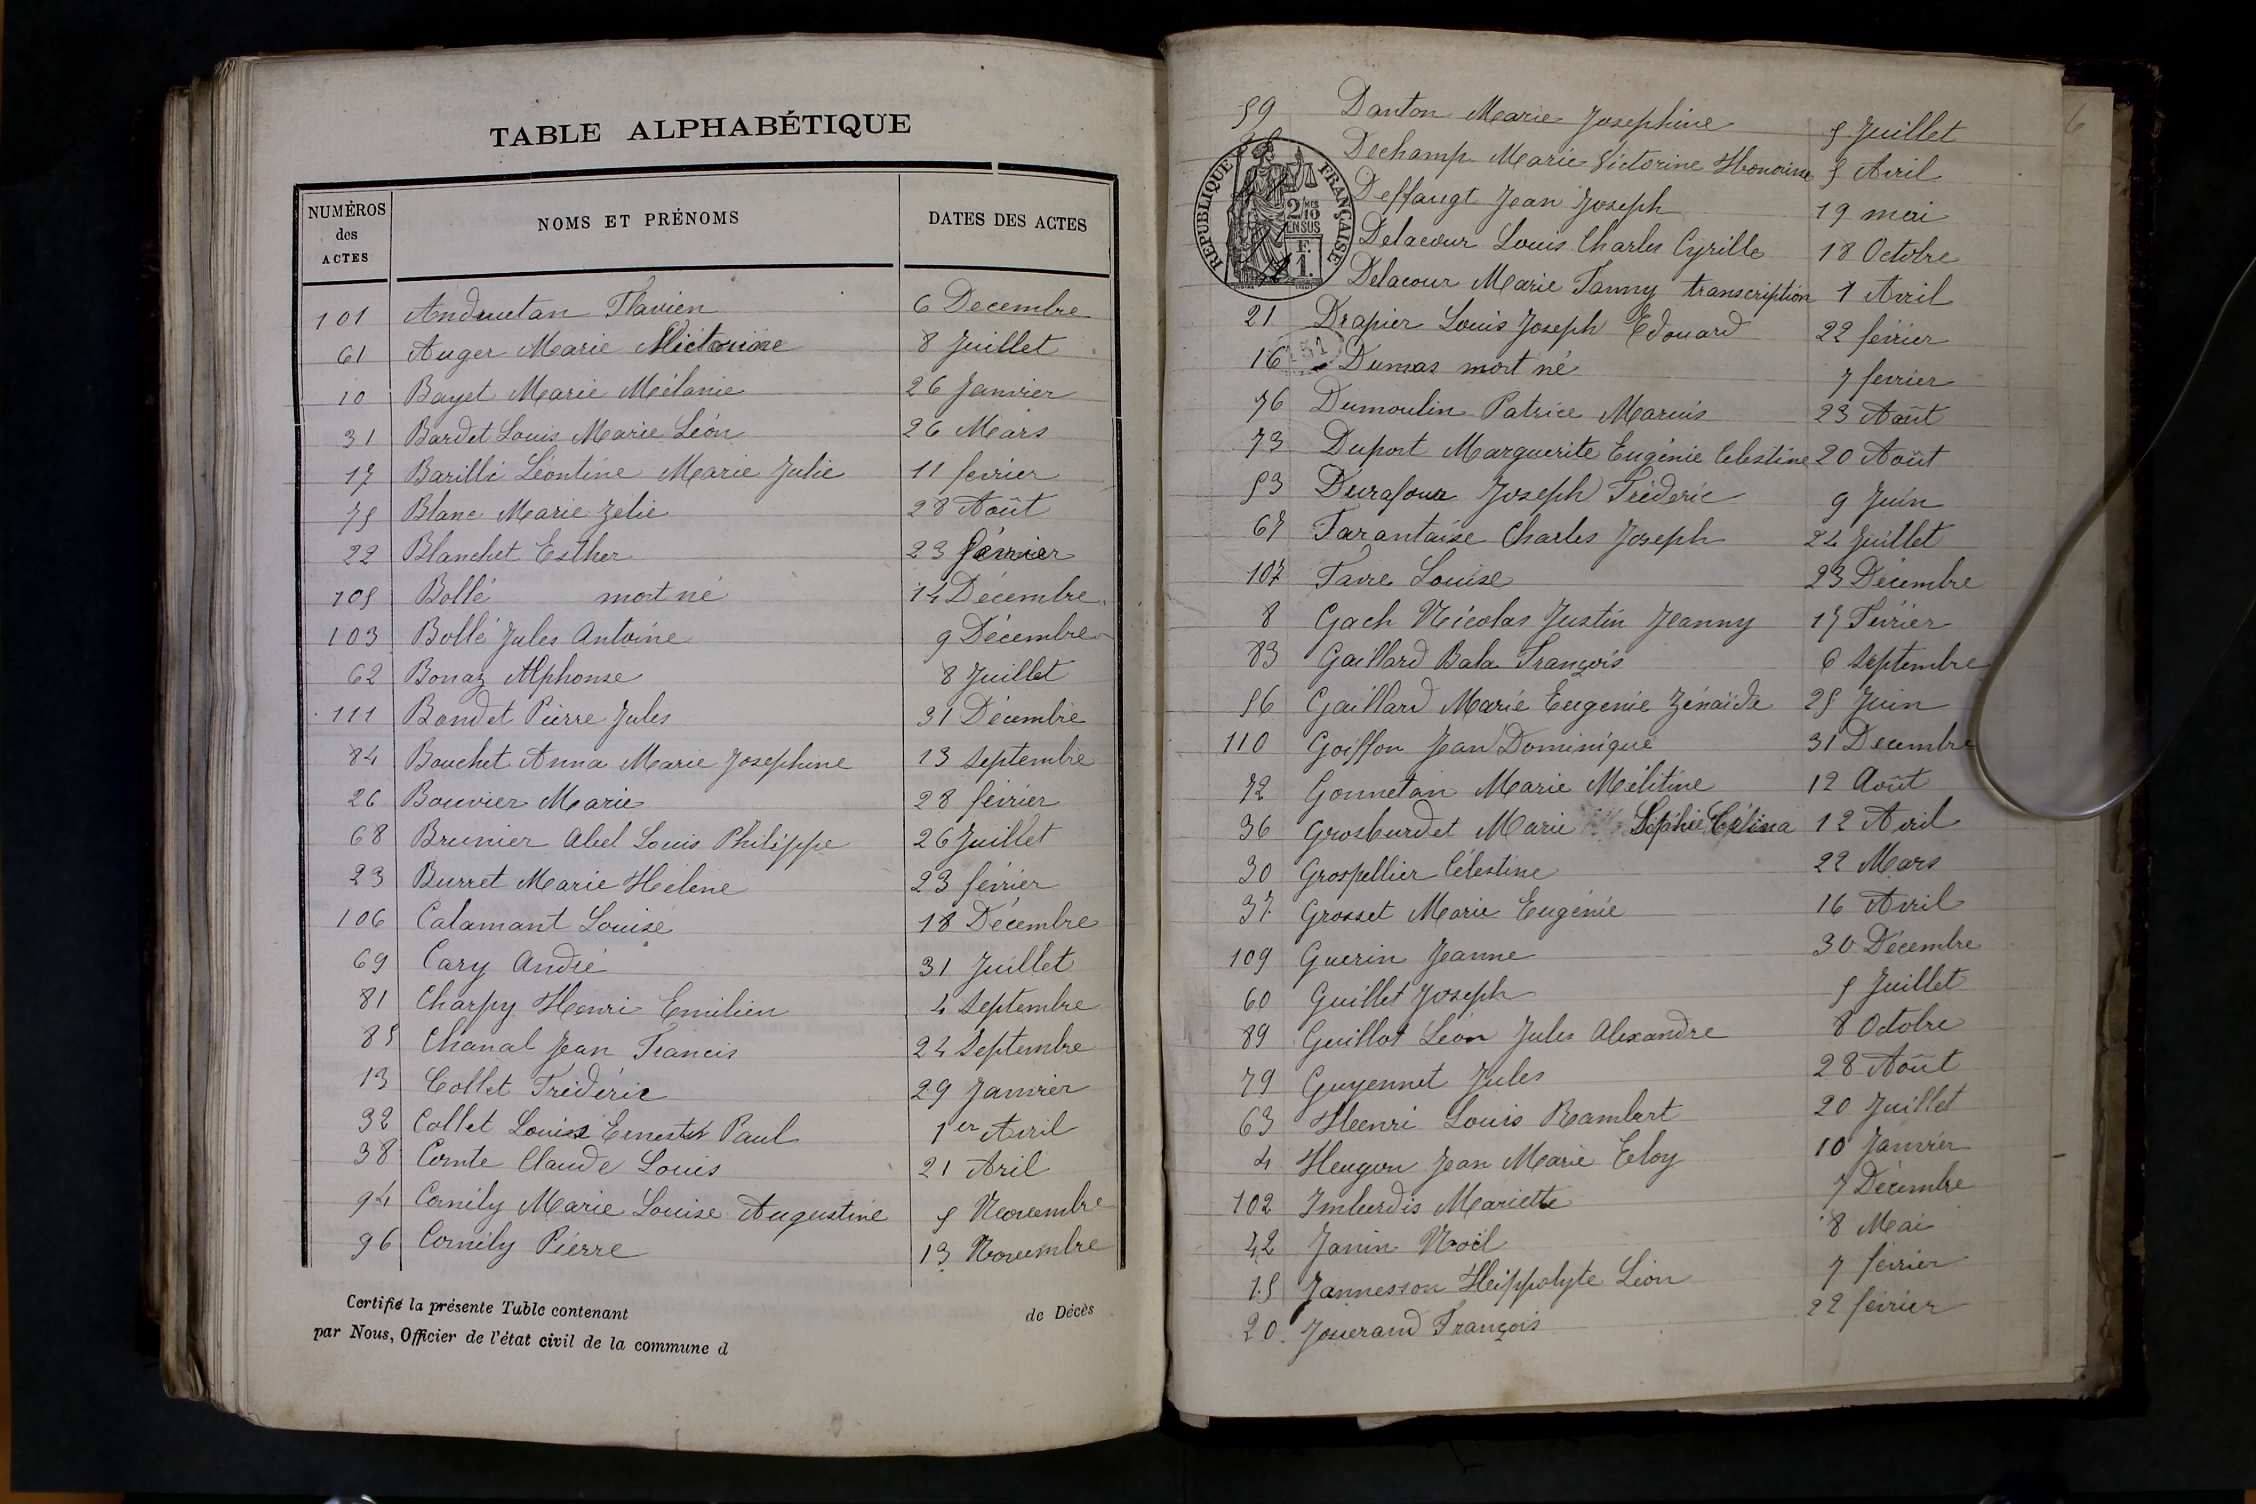 TABLE ALPHABÉTIQUE
NUMÉROS des ACTES NOMS ET PRÉNOMS DATES DES ACTES
101 Andruetan Flavien 6 Decembre
61 Auger Marie 8 Juillet
10 Bayet Marie Mélanie 26 Janvier
31 Bardet Louis Marie Léon 26 Mars
17 Barilli Léontine Marie Julie 11 fevrier
75 Blanc Marie Zelie 28 Août
22 Blanchet Esther 23 février
105 Bollé mort né 14 Décembre
103 Bollé Jules Antoine 9 Décembre
62 Bonaz Alphonse 8 Juillet
111 Bondet Pierre Jules 31 Décembre
84 Bouchet Anna Marie Josephine 13 septembre
26 Bouvier Marie 28 février
68 Brunier Abel Louis Philippe 26 Juillet
23 Burret Marie Helene 23 février
106 Calamant Louise 18 Décembre
69 Cary André 31 Juillet
81 Charpy Henri Emilien 4 septembre
85 Chanal Jean Francis 24 Septembre
13 Collet Fréderic 29 Janvier
32 Collet Louis Ernest Paul 1er Avril
38 Comte Claude Louis 21 Avril
94 Cornily Marie Louise Augustine 5 Novembre
96 Cornily Pierre 13 Novembre
Certifié la présente Table contenant de Décès
par Nous, Officier de l'état civil de la commune d
6
59 Danton Marie Josephine 5 Juillet
Dechamp Marie Victorine Honorine 5 Avril
Deffaugt Jean Joseph 19 mai
Delacour Louis Charles Cyrille 18 Octobre
Delacour Marie Fanny transcription 1 Avril
RÉPUBLIQUE FRANÇAISE
2/10 EN SUS
F. 1.
21 Drapier Louis Joseph Edouard 22 février
16 Dumas mort né 7 fevrier
76 Dumoulin Patrice Marius 23 Août
73 Duport Marguerite Eugénie Célestine 20 Août
53 Durafour Joseph Fréderic 9 Juin
67 Tarantaise Charles Joseph 24 Juillet
107 Favre Louise 23 Décembre
8 Gach Nicolas Justin Jeanny 17 Février
83 Gaillard Bala François 6 septembre
56 Gaillard Marie Eugenie Zénaïde 25 Juin
110 Goiffon Jean Dominique 31 Decembre
72 Gonnetan Marie Mélitine 12 Août
36 Grosburdet Marie Sophie Célina 12 Avril
30 Grospellier Célestine 22 Mars
37 Grosset Marie Eugénie 16 Avril
109 Guerin Jeanne 30 Décembre
60 Guillet Joseph 5 Juillet
89 Guillot Léon Jules Alexandre 8 Octobre
79 Guyennet Jules 28 Août
63 Henri Louis Rambert 20 Juillet
4 Heugon Jean Marie Eloy 10 Janvier
102 Imberdis Mariette 7 Décembre
42 Janin Noël 8 Mai
15 Jannesson Hippolyte Léon 7 fevrier
20 Jouerand François 22 février